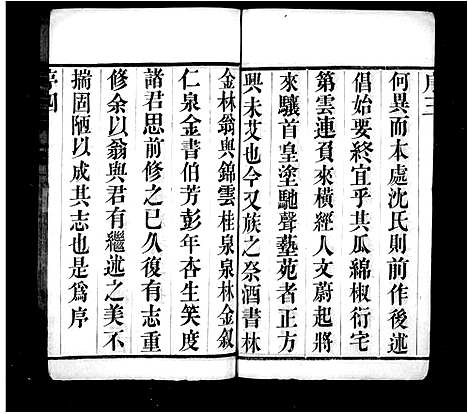 序三
何異而本處沈氏則前作後述
倡始要終宜乎其瓜綿椒衍宅
第雲連頁來橫經人文蔚起將
來驤首皇塗馳聲藝苑者正方
興未艾也今又族之祭酒書林
金林翁與錦雲桂泉泉林金敘
仁泉金書伯芳彭年杏生笑度
諸君思前修之已久復有志重
修余以翁與君有繼述之美不
揣固陋以成其志也是爲序
序四